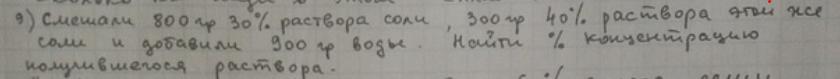 9) Смешали 800 гр 30% раствора соли, 300 гр 40% раствора этой же
соли и добавили 900 гр воды. Найти % концентрацию
получившегося раствора.